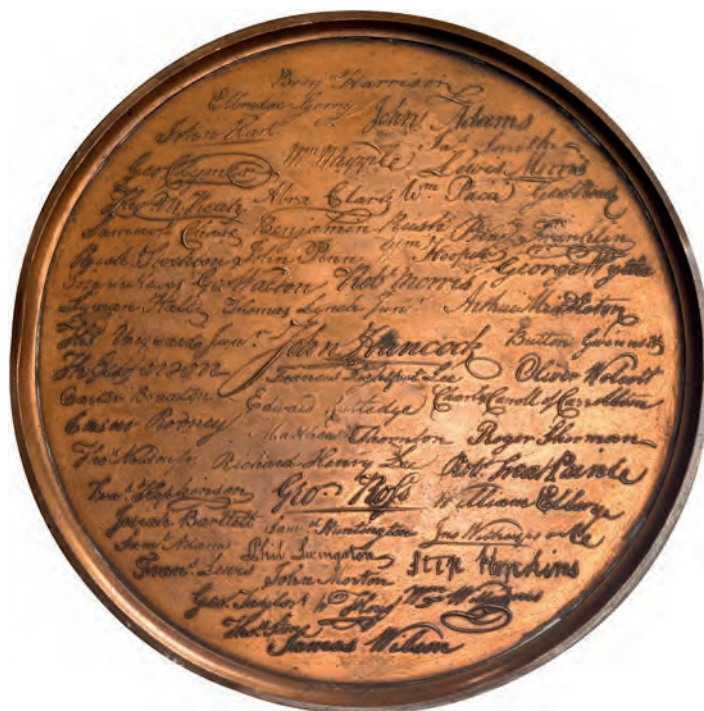 Benj Harrison
Elbridge Gerry John Adams
John Hart Jas Smith
Geo Clymer Wm Whipple Lewis Morris
Tho M:Kean Abra Clark Wm Paca Geo Read
Samuel Chase Benjamin Rush Benj Franklin
Richd Stockton John Penn Wm Hooper George Wythe
Joseph Hewes Geo Walton Robt Morris
Lyman Hall Thomas Lynch Junr Arthur Middleton
Thos Heyward Junr John Hancock Button Gwinnett
Th Jefferson Francis Lightfoot Lee Oliver Wolcott
Carter Braxton Edward Rutledge Charles Carroll of Carrollton
Caesar Rodney Matthew Thornton Roger Sherman
Thos Nelson Jr Richard Henry Lee Robt Treat Paine
Fras Hopkinson Geo Ross William Ellery
Josiah Bartlett Saml Huntington Jno Witherspoon
Saml Adams Phil Livingston Step Hopkins
Frans Lewis John Morton
Geo Taylor Wm Floyd Wm Williams
Thos Stone James Wilson